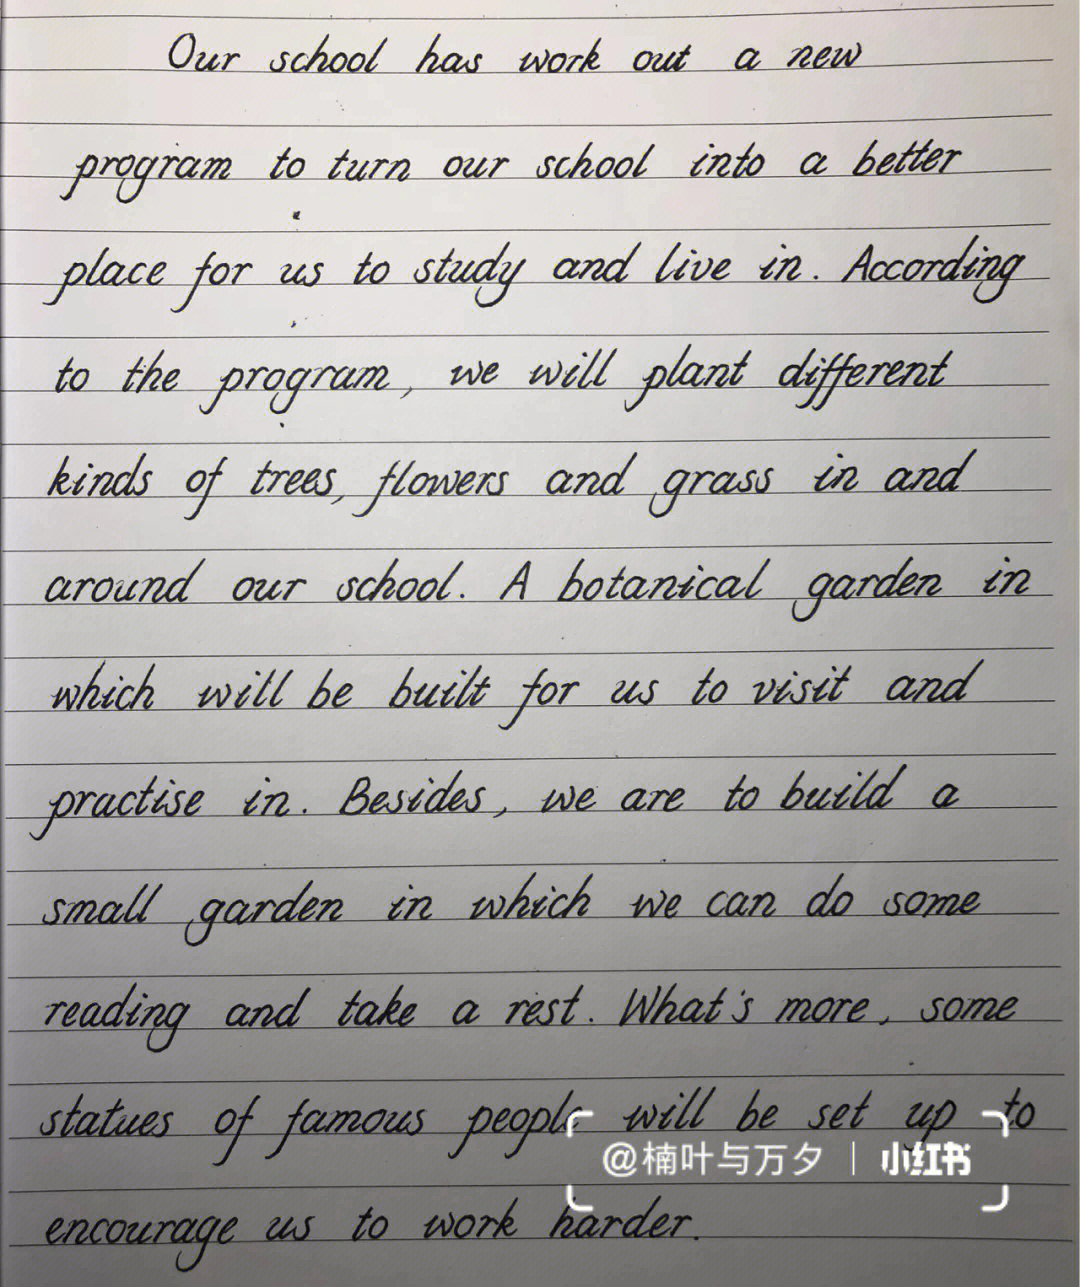 Our school has work out a new
program to turn our school into a better
place for us to study and live in. According
to the program, we will plant different
kinds of trees, flowers and grass in and
around our school. A botanical garden in
which will be built for us to visit and
practise in. Besides, we are to build a
small garden in which we can do some
reading and take a rest. What's more, some
statues of famous people will be set up to
@楠叶与万夕 | 小红书
encourage us to work harder.